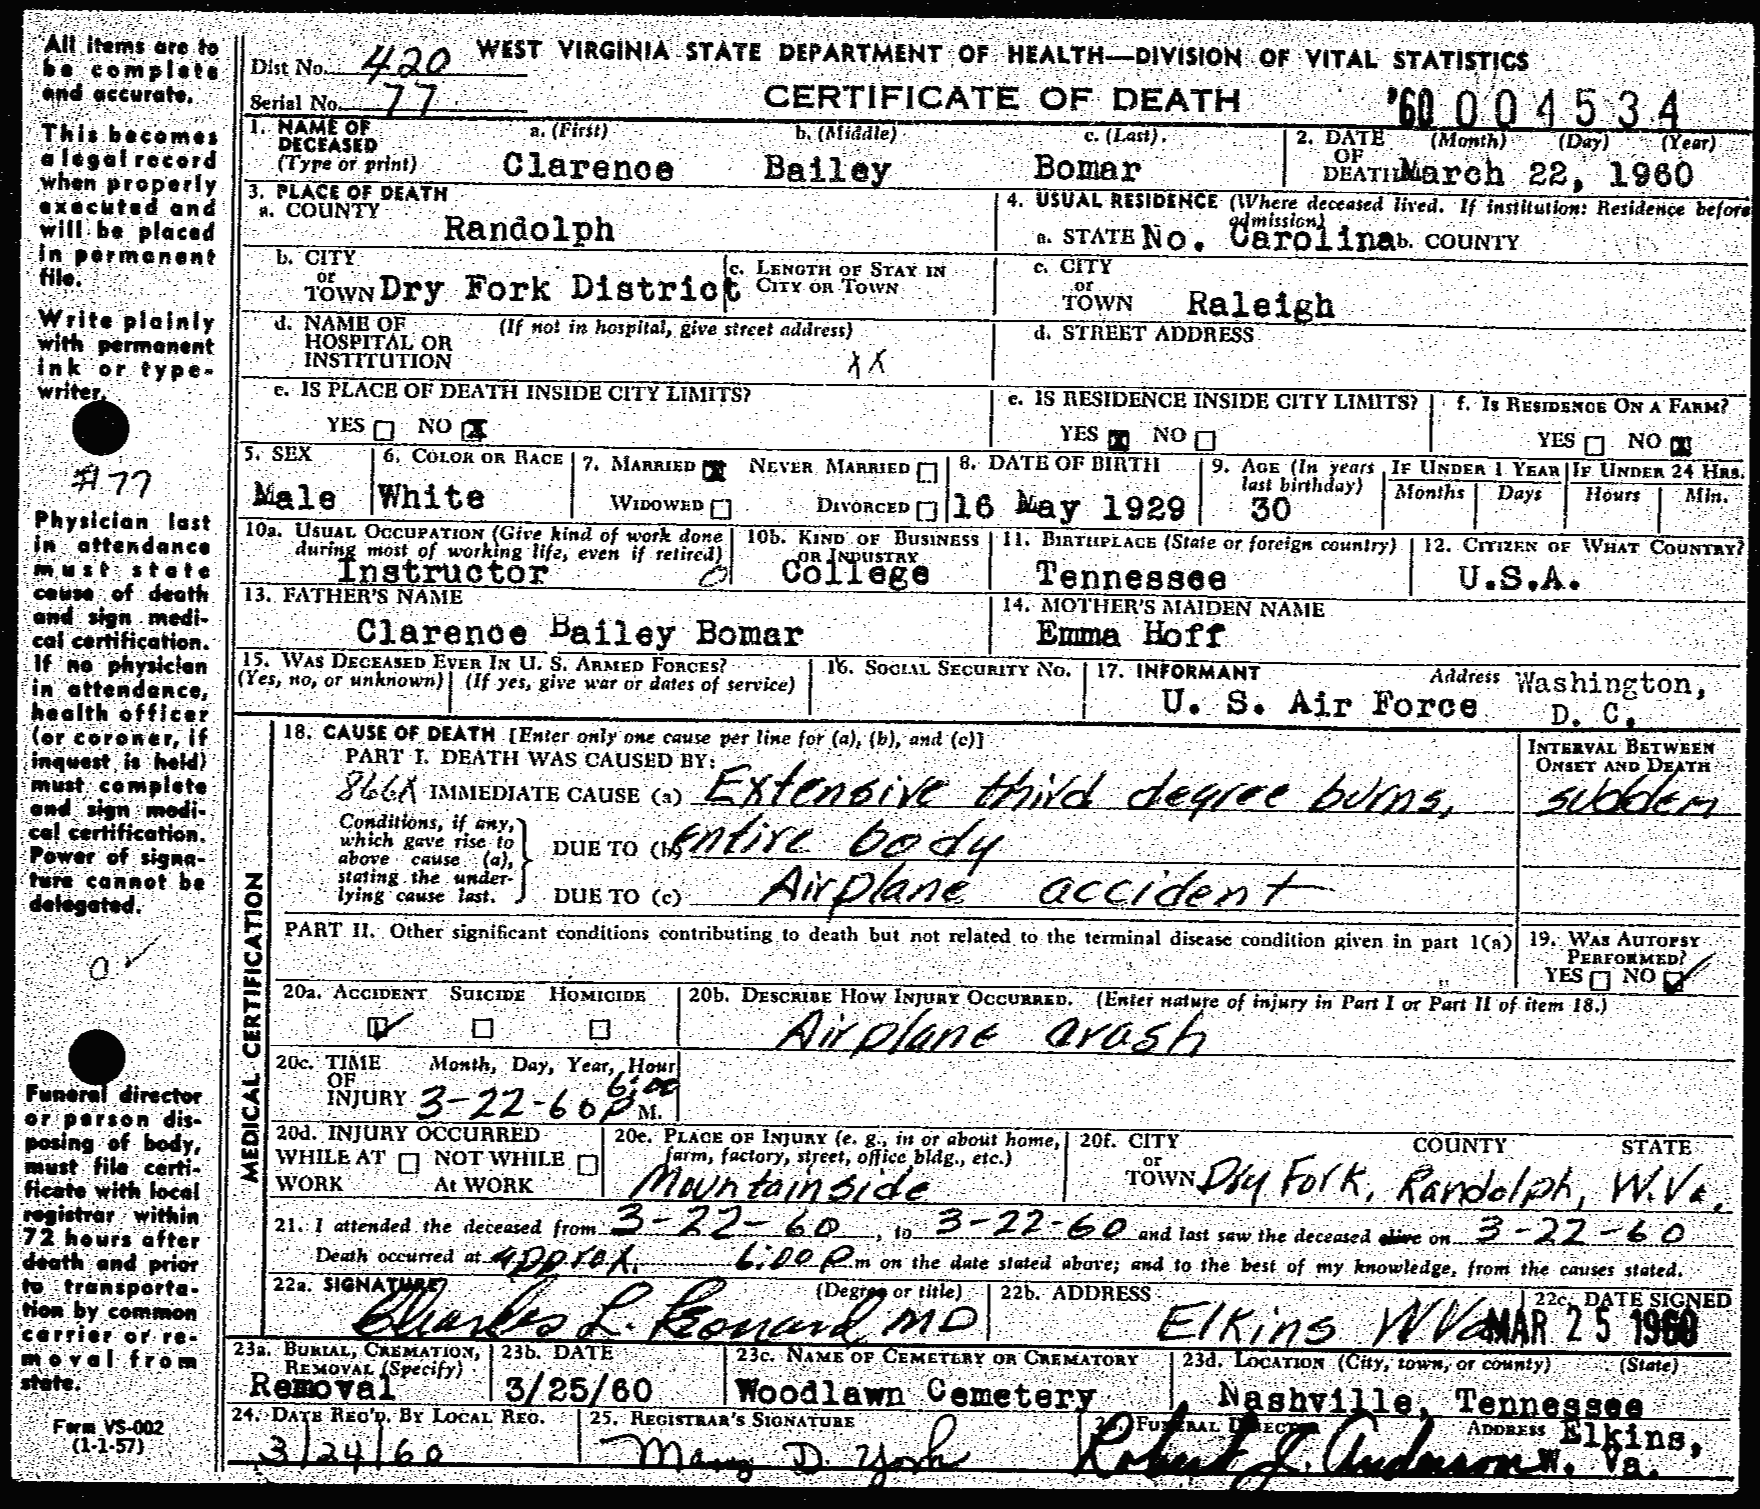 All items are to
be complete
and accurate.
This becomes
a legal record
when properly
executed and
will be placed
in permanent
file.
Write plainly
with permanent
ink or type-
writer.
#77
Physician last
in attendance
must state
cause of death
and sign medi-
cal certification.
If no physician
in attendance,
health officer
(or coroner, if
inquest is held)
must complete
and sign medi-
cal certification.
Power of signa-
ture cannot be
delegated.
Funeral director
or person dis-
posing of body,
must file certi-
ficate with local
registrar within
72 hours after
death and prior
to transporta-
tion by common
carrier or re-
moval from
state.
Form VS-002
(1-1-57)
WEST VIRGINIA STATE DEPARTMENT OF HEALTH—DIVISION OF VITAL STATISTICS
Dist No. 420
Serial No. 77
CERTIFICATE OF DEATH '60 004534
1. NAME OF DECEASED (Type or print) a. (First) b. (Middle) c. (Last).
Clarence Bailey Bomar
2. DATE OF DEATH (Month) (Day) (Year)
March 22, 1960
3. PLACE OF DEATH
a. COUNTY Randolph
4. USUAL RESIDENCE (Where deceased lived. If institution: Residence before admission)
a. STATE No. Carolina b. COUNTY
b. CITY or TOWN Dry Fork District
c. LENGTH OF STAY IN CITY OR TOWN
c. CITY or TOWN Raleigh
d. NAME OF HOSPITAL OR INSTITUTION (If not in hospital, give street address)
XX
d. STREET ADDRESS
e. IS PLACE OF DEATH INSIDE CITY LIMITS?
YES NO X
e. IS RESIDENCE INSIDE CITY LIMITS?
YES X NO
f. IS RESIDENCE ON A FARM?
YES NO X
5. SEX
Male
6. COLOR OR RACE
White
7. MARRIED X NEVER MARRIED
WIDOWED DIVORCED
8. DATE OF BIRTH
16 May 1929
9. AGE (In years last birthday)
30
IF UNDER 1 YEAR
Months Days
IF UNDER 24 HRS.
Hours Min.
10a. USUAL OCCUPATION (Give kind of work done during most of working life, even if retired)
Instructor
10b. KIND OF BUSINESS OR INDUSTRY
College
11. BIRTHPLACE (State or foreign country)
Tennessee
12. CITIZEN OF WHAT COUNTRY?
U.S.A.
13. FATHER'S NAME
Clarence Bailey Bomar
14. MOTHER'S MAIDEN NAME
Emma Hoff
15. WAS DECEASED EVER IN U. S. ARMED FORCES?
(Yes, no, or unknown) (If yes, give war or dates of service)
16. SOCIAL SECURITY NO.
17. INFORMANT Address
U. S. Air Force Washington, D. C.
MEDICAL CERTIFICATION
18. CAUSE OF DEATH [Enter only one cause per line for (a), (b), and (c)]
PART I. DEATH WAS CAUSED BY:
866X IMMEDIATE CAUSE (a) Extensive third degree burns,
INTERVAL BETWEEN ONSET AND DEATH
sudden
Conditions, if any, which gave rise to above cause (a), stating the underlying cause last.
DUE TO (b) entire body
DUE TO (c) Airplane accident
PART II. Other significant conditions contributing to death but not related to the terminal disease condition given in part 1(a)
19. WAS AUTOPSY PERFORMED?
YES NO ✓
20a. ACCIDENT SUICIDE HOMICIDE
✓
20b. DESCRIBE HOW INJURY OCCURRED. (Enter nature of injury in Part I or Part II of item 18.)
Airplane crash
20c. TIME OF INJURY Month, Day, Year, Hour
3-22-60 6:00 P M.
20d. INJURY OCCURRED
WHILE AT WORK NOT WHILE At WORK
20e. PLACE OF INJURY (e. g., in or about home, farm, factory, street, office bldg., etc.)
Mountainside
20f. CITY or TOWN COUNTY STATE
Dry Fork, Randolph, W.Va.
21. I attended the deceased from 3-22-60, to 3-22-60 and last saw the deceased alive on 3-22-60
Death occurred at approx. 6:00 P m on the date stated above; and to the best of my knowledge, from the causes stated.
22a. SIGNATURE (Degree or title)
Charles L. Leonard MD
22b. ADDRESS
Elkins W Va
22c. DATE SIGNED
MAR 25 1960
23a. BURIAL, CREMATION, REMOVAL (Specify)
Removal
23b. DATE
3/25/60
23c. NAME OF CEMETERY OR CREMATORY
Woodlawn Cemetery
23d. LOCATION (City, town, or county) (State)
Nashville, Tennessee
24. DATE REC'D. BY LOCAL REG.
3/24/60
25. REGISTRAR'S SIGNATURE
Mary D. York
FUNERAL DIRECTOR ADDRESS
Robert J. Anderson Elkins, W. Va.